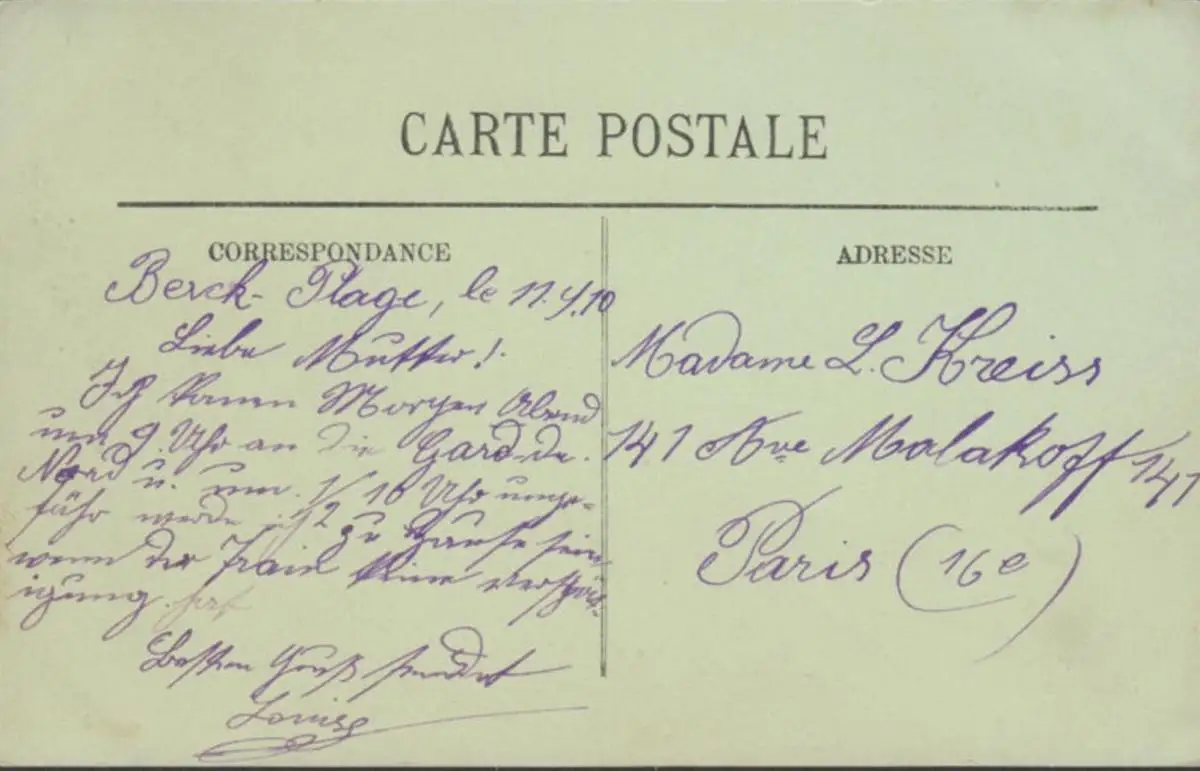 CARTE POSTALE
CORRESPONDANCE
ADRESSE
Berck-Plage, le 11.4.10
Liebe Mutter!
Ich komm Morgen Abend
um 9 Uhr an die Gard-de.
Nord u. um 1/2 10 Uhr unge-
fähr werde ich zu Hause sein
wenn der Train keine verspät-
igung hat
Besten Gruß sendet
Louise
Madame L. Kreiss
141 Ave Malakoff 141
Paris (16e)